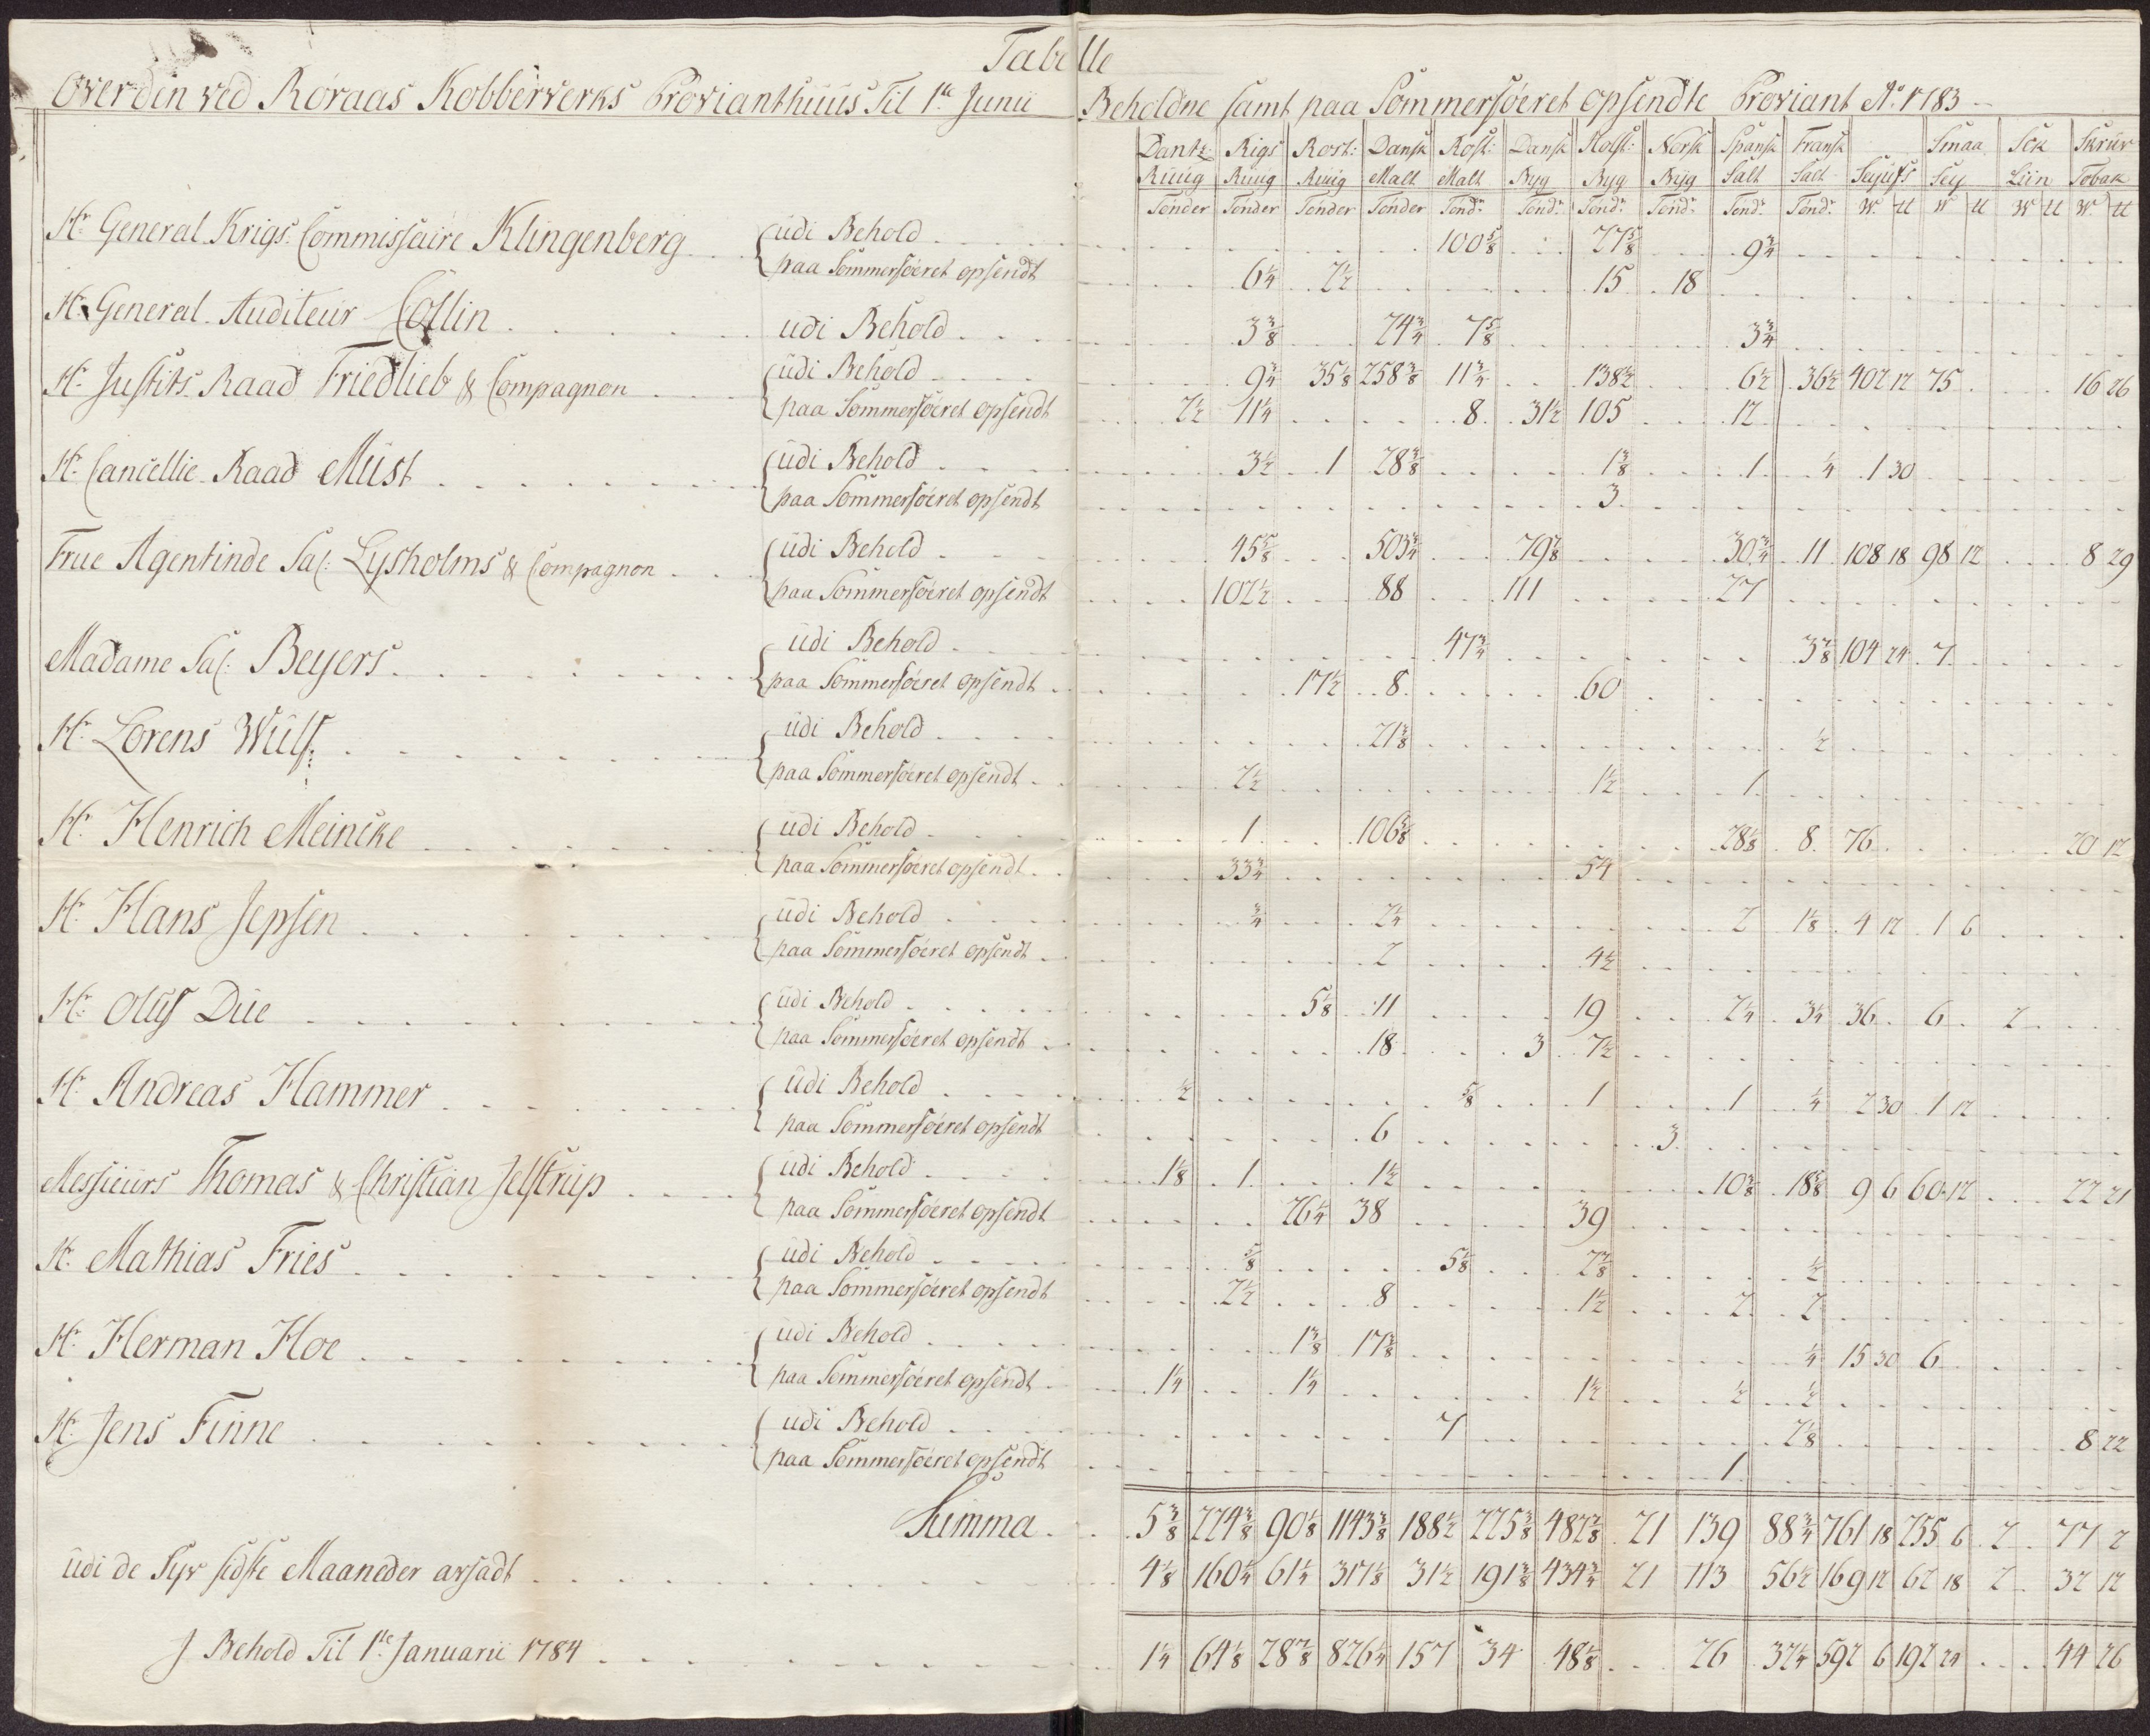 Tabelle
Over den ved Røraas Kobberverks Provianthuus Til 1.te Junii Beholdne samt paa Sommerføeret opsendte Proviant A.o 1783
Dantz: Rigs Rost: Dansk Rost: Dansk Holst: Norsk Spansk Fransk Smaa Sck Skruv
Ruug Ruug Ruug Malt Malt Byg Byg Byg Salt Salt Sejufs Sey Liin Tobak
Tønder Tønder Tønder Tønder Tønd.r Tønd.r Tønd.r Tønd.r Tønd.r Tønd.r W. tt W tt W tt W. tt
Hr General Krigs Commissaire Klingenberg udi Behold 100 5/8 27 5/8 9 3/4
paa Sommerføeret opsendt 6 1/4 2 1/2 15 18
Hr General Auditeur Collin udi Behold 3 3/8 24 3/4 7 5/8 3 3/4
Hr Justits Raad Friedlieb & Compagnon udi Behold 9 3/4 35 1/8 258 3/8 11 3/4 138 1/2 6 1/2 36 1/2 402 12 75 16 26
paa Sommerføeret opsendt 2 1/2 11 1/4 8 31 1/2 105 12
Hr Cancellie Raad Must udi Behold 3 1/2 1 28 3/8 1 3/8 1 1/4 1 30
paa Sommerføeret opsendt 3
Frue Agentinde Sal: Lysholms & Compagnon udi Behold 45 5/8 503 3/4 79 7/8 30 3/4 11 108 18 98 12 8 29
paa Sommerføeret opsendt 102 1/2 88 111 27
Madame Sal: Beyers udi Behold 47 3/4 3 7/8 104 24 7
paa Sommerføeret opsendt 17 1/2 8 60
Hr Lorens Wulf udi Behold 21 3/8 1/2
paa Sommerføeret opsendt 2 1/2 1 1/2 1
Hr Henrich Meincke udi Behold 1 106 5/8 28 1/8 8 76 20 12
paa Sommerføeret opsendt 33 3/4 54
Hr Hans Jepsen udi Behold 3/4 2 1/4 2 1 1/8 4 12 1 6
paa Sommerføeret opsendt 2 4 1/2
Hr Oluf Due udi Behold 5 1/8 11 19 2 1/4 3 1/4 36 6 2
paa Sommerføeret opsendt 18 3 7 1/2
Hr Andreas Hammer udi Behold 1/2 5/8 1 1 1/4 2 30 1 12
paa Sommerføeret opsendt 6 3
Messieurs Thomas & Christian Jelstrup udi Behold 1 1/8 1 1 1/2 10 3/8 18 5/8 9 6 60 12 22 21
paa Sommerføeret opsendt 26 1/4 38 39
Hr Mathias Fries udi Behold 5/8 5 1/8 2 7/8 1/2
paa Sommerføeret opsendt 2 1/2 8 1 1/2 2 2
Hr Herman Hoe udi Behold 1 3/8 17 3/8 1/4 15 30 6
paa Sommerføeret opsendt 1 1/4 1 1/4 1 1/2 1/2 1/2
Hr Jens Finne udi Behold 7 2 1/8 8 22
paa Sommerføeret opsendt 1
Summa 5 3/8 224 3/8 90 1/8 1143 3/8 188 1/2 225 3/8 482 7/8 21 139 88 3/4 761 18 255 6 2 77 2
udi de Syv sidste Maaneder afsadt 4 1/8 160 1/4 61 1/4 317 1/8 31 1/2 191 3/8 434 3/4 21 113 56 1/2 169 12 62 18 2 32 12
J Behold Til 1.te Januarii 1784 1 1/4 64 1/8 28 7/8 826 1/4 157 34 48 1/8 26 32 1/4 592 6 192 24 44 26